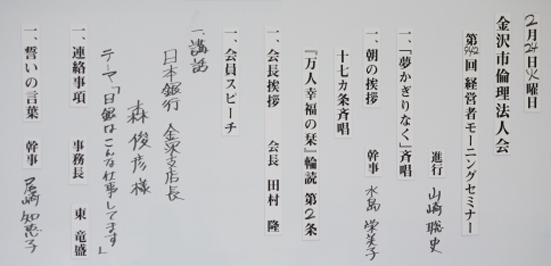 2月24日火曜日
金沢市倫理法人会
第942回 経営者モーニングセミナー
進行 山崎聡史
一、「夢かぎりなく」斉唱
一、朝の挨拶 幹事 水島栄美子
十七カ条斉唱
『万人幸福の栞』輪読 第2条
一、会長挨拶 会長 田村 隆
一、会員スピーチ
一、講話
日本銀行 金沢支店長
森 俊彦 様
テーマ「日銀はこんな仕事してます」
一、連絡事項 事務長 東 竜盛
一、誓いの言葉 幹事 尾崎知恵子